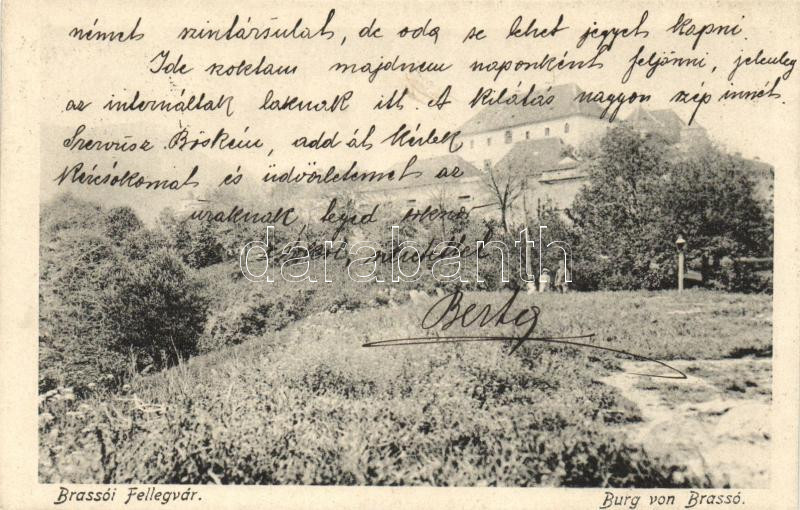 német színtársulat, de oda se lehet jegyet kapni.
Ide szoktam majdnem naponként feljönni, jelenleg
az internáltak laknak itt. A kilátás nagyon szép innét.
Szervusz Böském, add át kérlek
kézcsókomat és üdvözletemet az
uraknak
darabanth
Berta
Brassói Fellegvár.
Burg von Brassó.